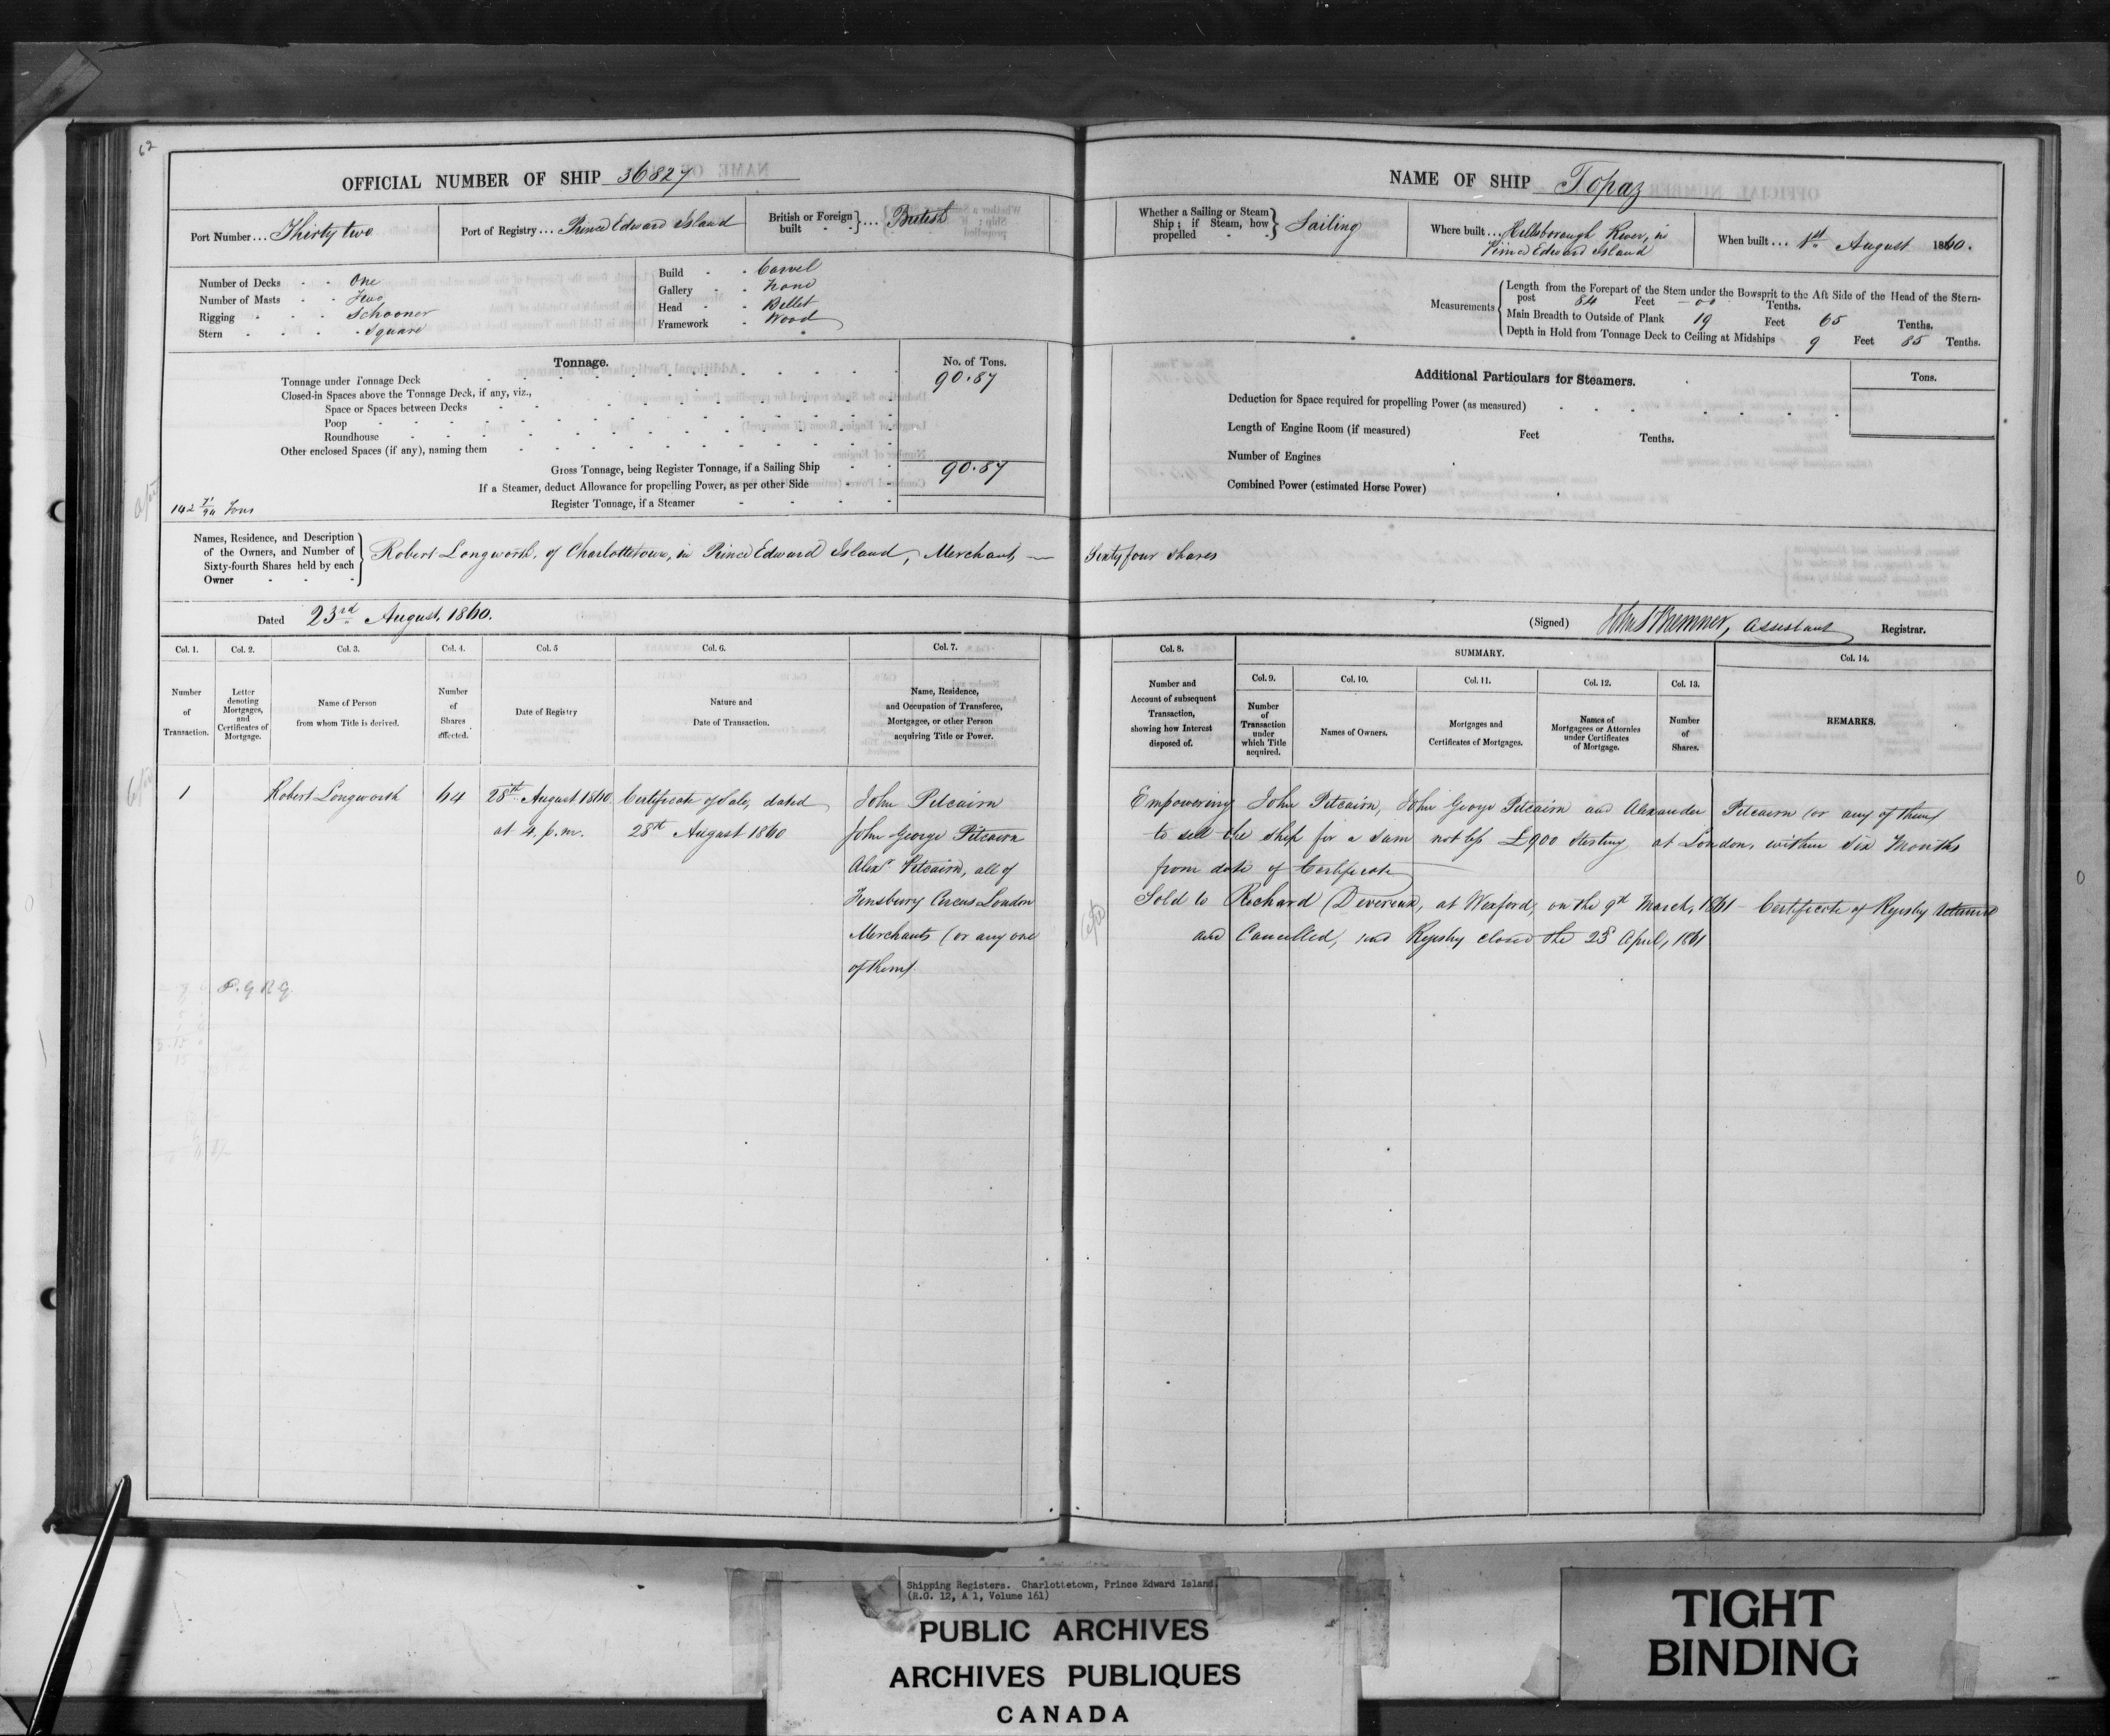 62
OFFICIAL NUMBER OF SHIP 36827
Port Number... Thirty two
Port of Registry... Prince Edward Island
British or Foreign built }... British
Number of Decks - - One
Number of Masts - - Two
Rigging - - - Schooner
Stern - - - - Square
Build - - Carvel
Gallery - - None
Head - - Billet
Framework - Wood
Tonnage.
No. of Tons.
Tonnage under Tonnage Deck 90.87
Closed-in Spaces above the Tonnage Deck, if any, viz.,
Space or Spaces between Decks
Poop
Roundhouse
Other enclosed Spaces (if any), naming them
Gross Tonnage, being Register Tonnage, if a Sailing Ship 90.87
If a Steamer, deduct Allowance for propelling Power, as per other Side
142 71/94 Tons
Register Tonnage, if a Steamer
Names, Residence, and Description
of the Owners, and Number of
Sixty-fourth Shares held by each
Owner
Robert Longworth, of Charlottetown, in Prince Edward Island, Merchant, —
Dated 23rd August, 1860.
Col. 1. Col. 2. Col. 3. Col. 4. Col. 5 Col. 6. Col. 7.
Number of Transaction.
Letter denoting Mortgages, and Certificates of Mortgage.
Name of Person from whom Title is derived.
Number of Shares affected.
Date of Registry
Nature and Date of Transaction.
Name, Residence, and Occupation of Transferee, Mortgagee, or other Person acquiring Title or Power.
1 Robert Longworth 64 28th August 1860 Certificate of Sale, dated John Pitcairn
at 4. p.m. 28th August 1860 John George Pitcairn
Alexr Pitcairn, all of
Finsbury Circus London
Merchants (or any one
of them)
NAME OF SHIP Topaz
Whether a Sailing or Steam Ship; if Steam, how propelled } Sailing
Where built... Hillsborough River, in
Prince Edward Island
When built... 1st August 1860.
Measurements
Length from the Forepart of the Stem under the Bowsprit to the Aft Side of the Head of the Stern-
post 84 Feet - 00 Tenths.
Main Breadth to Outside of Plank 19 Feet 65 Tenths.
Depth in Hold from Tonnage Deck to Ceiling at Midships 9 Feet 85 Tenths.
Additional Particulars for Steamers.
Tons.
Deduction for Space required for propelling Power (as measured)
Length of Engine Room (if measured) Feet Tenths.
Number of Engines
Combined Power (estimated Horse Power)
Sixty four shares
(Signed) Assistant Registrar.
Col. 8.
SUMMARY.
Col. 9. Col. 10. Col. 11. Col. 12. Col. 13. Col. 14.
Number and Account of subsequent Transaction, showing how Interest disposed of.
Number of Transaction under which Title acquired.
Names of Owners.
Mortgages and Certificates of Mortgages.
Names of Mortgagees or Attornies under Certificates of Mortgage.
Number of Shares.
REMARKS.
Empowering John Pitcairn, John George Pitcairn and Alexander Pitcairn (or any of them)
to sell the ship for a sum not less £900 Sterling at London, within six Months
from date of Certificate
Sold to Richard Devereux, at Wexford, on the 9th March, 1861 - Certificate of Registry returned
and Cancelled, and Registry closed the April, 1861
Shipping Registers. Charlottetown, Prince Edward Island.
(R.G. 12, A 1, Volume 161)
PUBLIC ARCHIVES
ARCHIVES PUBLIQUES
CANADA
TIGHT
BINDING